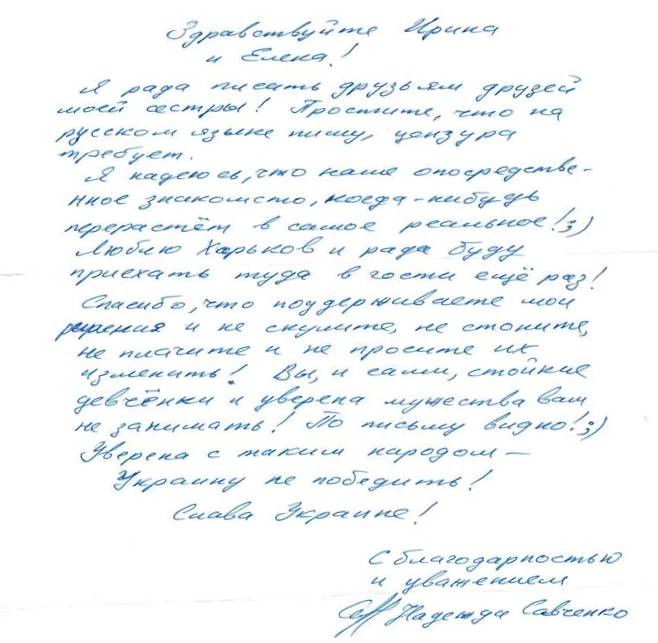 Здравствуйте Ирина
и Елена!
Я рада писать друзьям друзей
моей сестры! Простите, что на
русском языке пишу, цензура
требует.
Я надеюсь, что наше опосредстве-
нное знакомсто, когда-нибудь
перерастёт в самое реальное! ;)
Люблю Харьков и рада буду
приехать туда в гости ещё раз!
Спасибо, что поддерживаете мои
решения и не скулите, не стоните,
не плачите и не просите их
изменить! Вы, и сами, стойкие
девчёнки и уверена мужества вам
не занимать! По письму видно! ;)
Уверена с таким народом –
Украину не победить!
Слава Украине!
С благодарностью
и уважением
Надежда Савченко